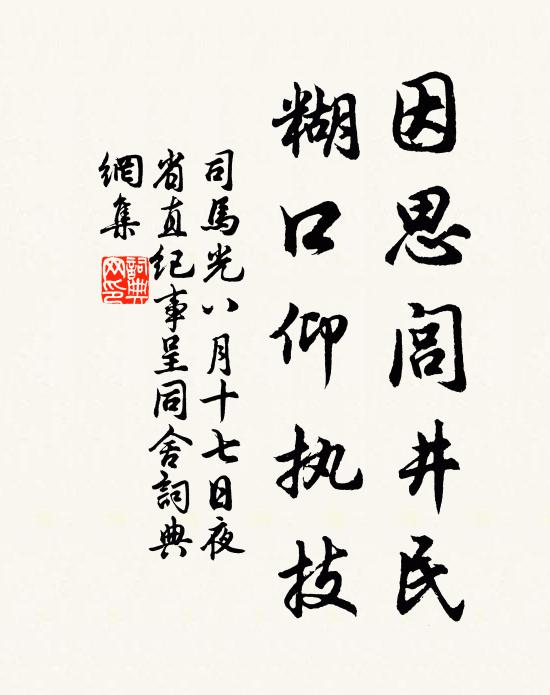 因思闾井民
糊口仰执技
司馬光八月十七日夜
省直纪事呈同舍詞典
網集
詞典
网印